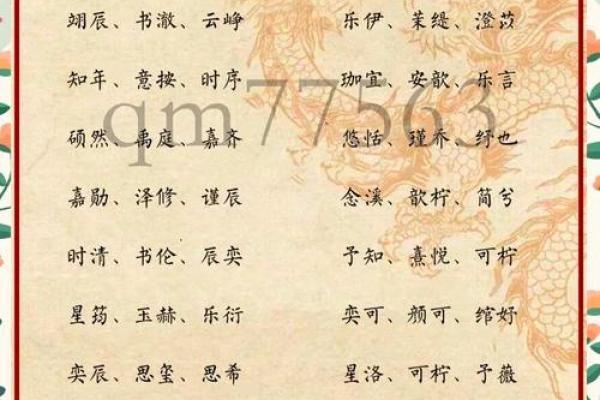 翊辰、书澈、云峥 乐伊、茉缇、澄苡
知年、意按、时序 珈宜、安歆、乐言
qm77563
硕然、禹庭、嘉齐 悠恬、瑾乔、纾也
嘉勋、泽修、谨辰 念溪、歆柠、简兮
时清、书伦、辰奕 予知、熹悦、可柠
星筠、玉赫、乐衍 奕可、颜可、绾妤
奕辰、思玺、思希 星洛、可柠、予薇